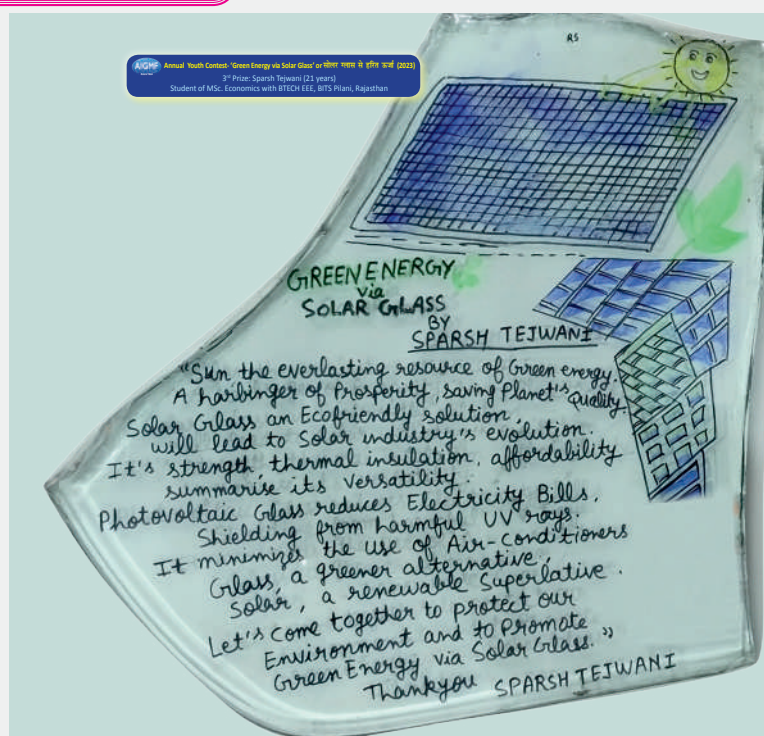 RS
AIGMF
Annual Youth Contest- 'Green Energy via Solar Glass' or सोलर ग्लास से हरित ऊर्जा (2023)
3rd Prize: Sparsh Tejwani (21 years)
Student of MSc. Economics with BTECH EEE, BITS Pilani, Rajasthan
GREEN ENERGY
via
SOLAR GLASS
BY
SPARSH TEJWANI
"Sun the everlasting resource of Green energy.
A harbinger of Prosperity, saving Planet's Quality.
Solar Glass an Ecofriendly solution,
will lead to Solar industry's evolution.
It's strength, thermal insulation, affordability
summarise its versatility.
Photovoltaic Glass reduces Electricity Bills,
Shielding from harmful UV rays.
It minimizes the use of Air-conditioners
Glass, a greener alternative,
Solar, a renewable Superlative.
Let's come together to protect our
Environment and to Promote
Green Energy via Solar Glass."
Thankyou SPARSH TEJWANI